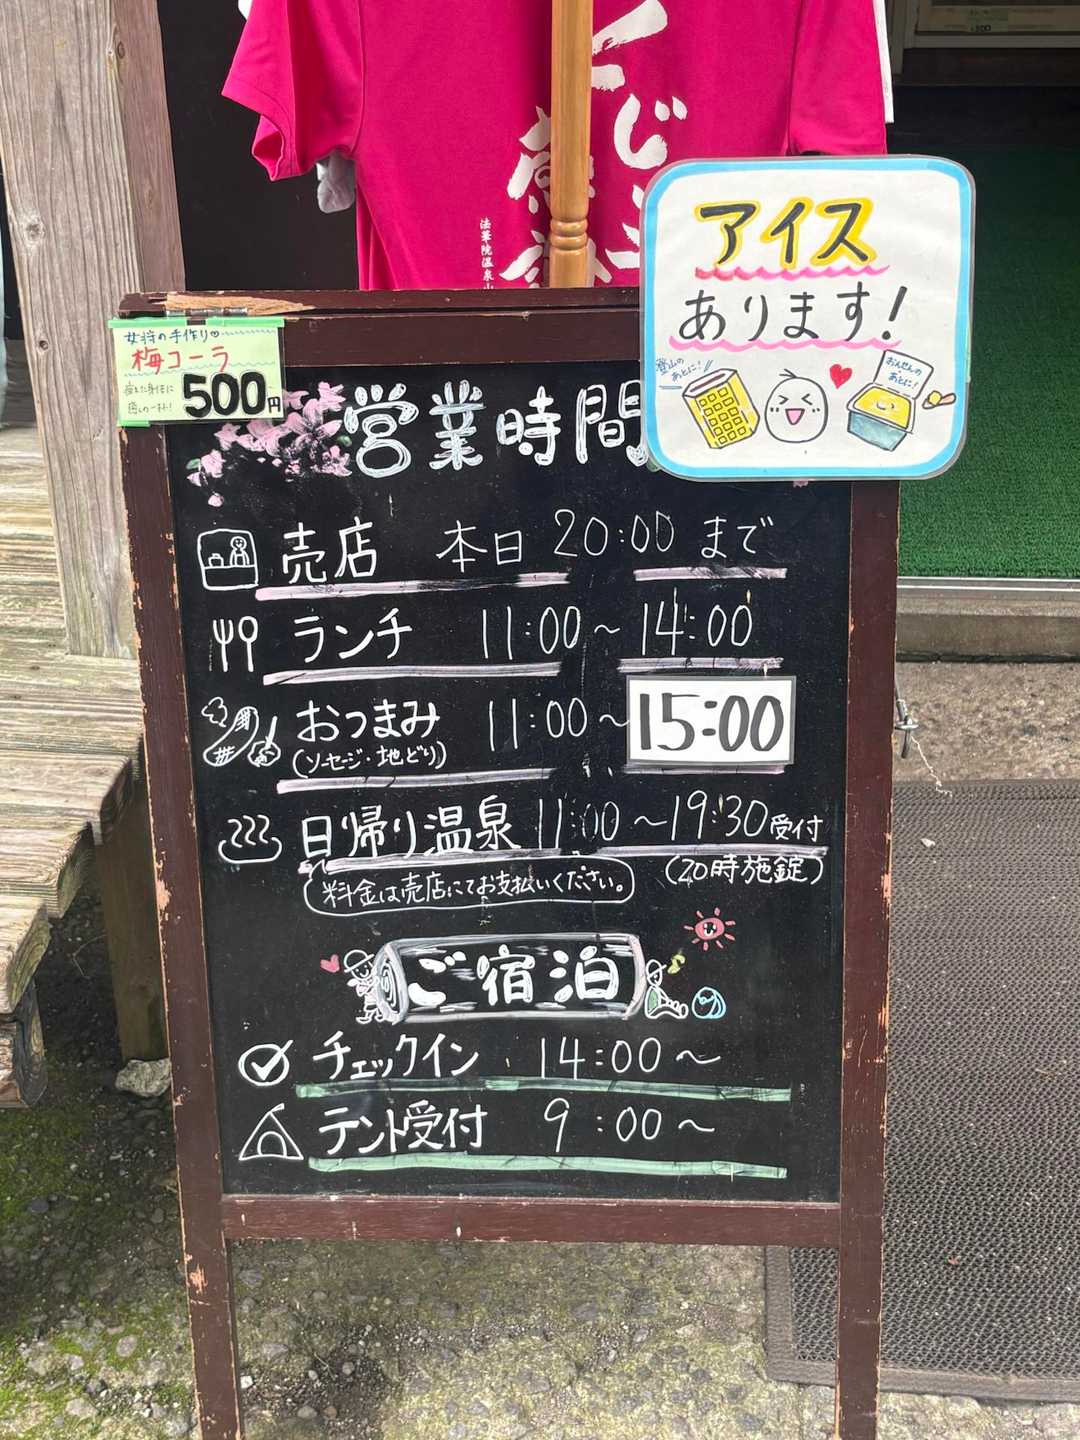 くじ
法華院温泉山
アイス
あります!
登山の
あとに!
おんせんの
あとに!
女将の手作り
梅コーラ
疲れた身体に
癒しの一杯!
500円
営業時間
売店 本日 20:00 まで
ランチ 11:00~14:00
おつまみ 11:00~15:00
(ソーセージ・地どり)
日帰り温泉 11:00~19:30受付
料金は売店にてお支払いください。
(20時施錠)
ご宿泊
チェックイン 14:00~
テント受付 9:00~